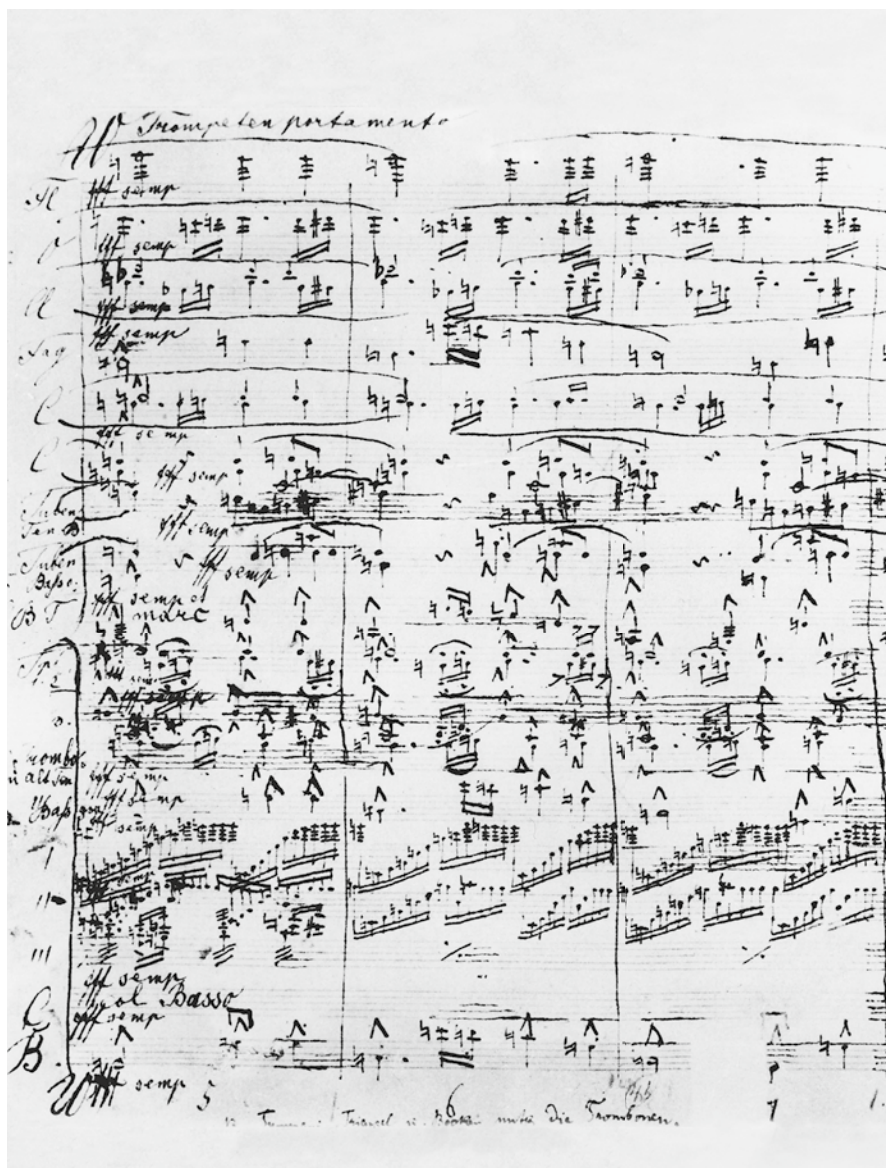 W Trompeten portamento
fff semp
Fl
O fff semp
Cl fff semp
fff semp
Fag
C
fff semp
C fff semp
Tuben
Ten B fff semp
Tuben
Basso fff semp
fff semp et
B T marc
fff semp
fff semp
fff semp
fff semp
Baß
fff semp
I
II
III
fff semp
col Basso
C fff semp
B
W fff semp 5 6 7
Triangel u. Becken unter die Trombonen.